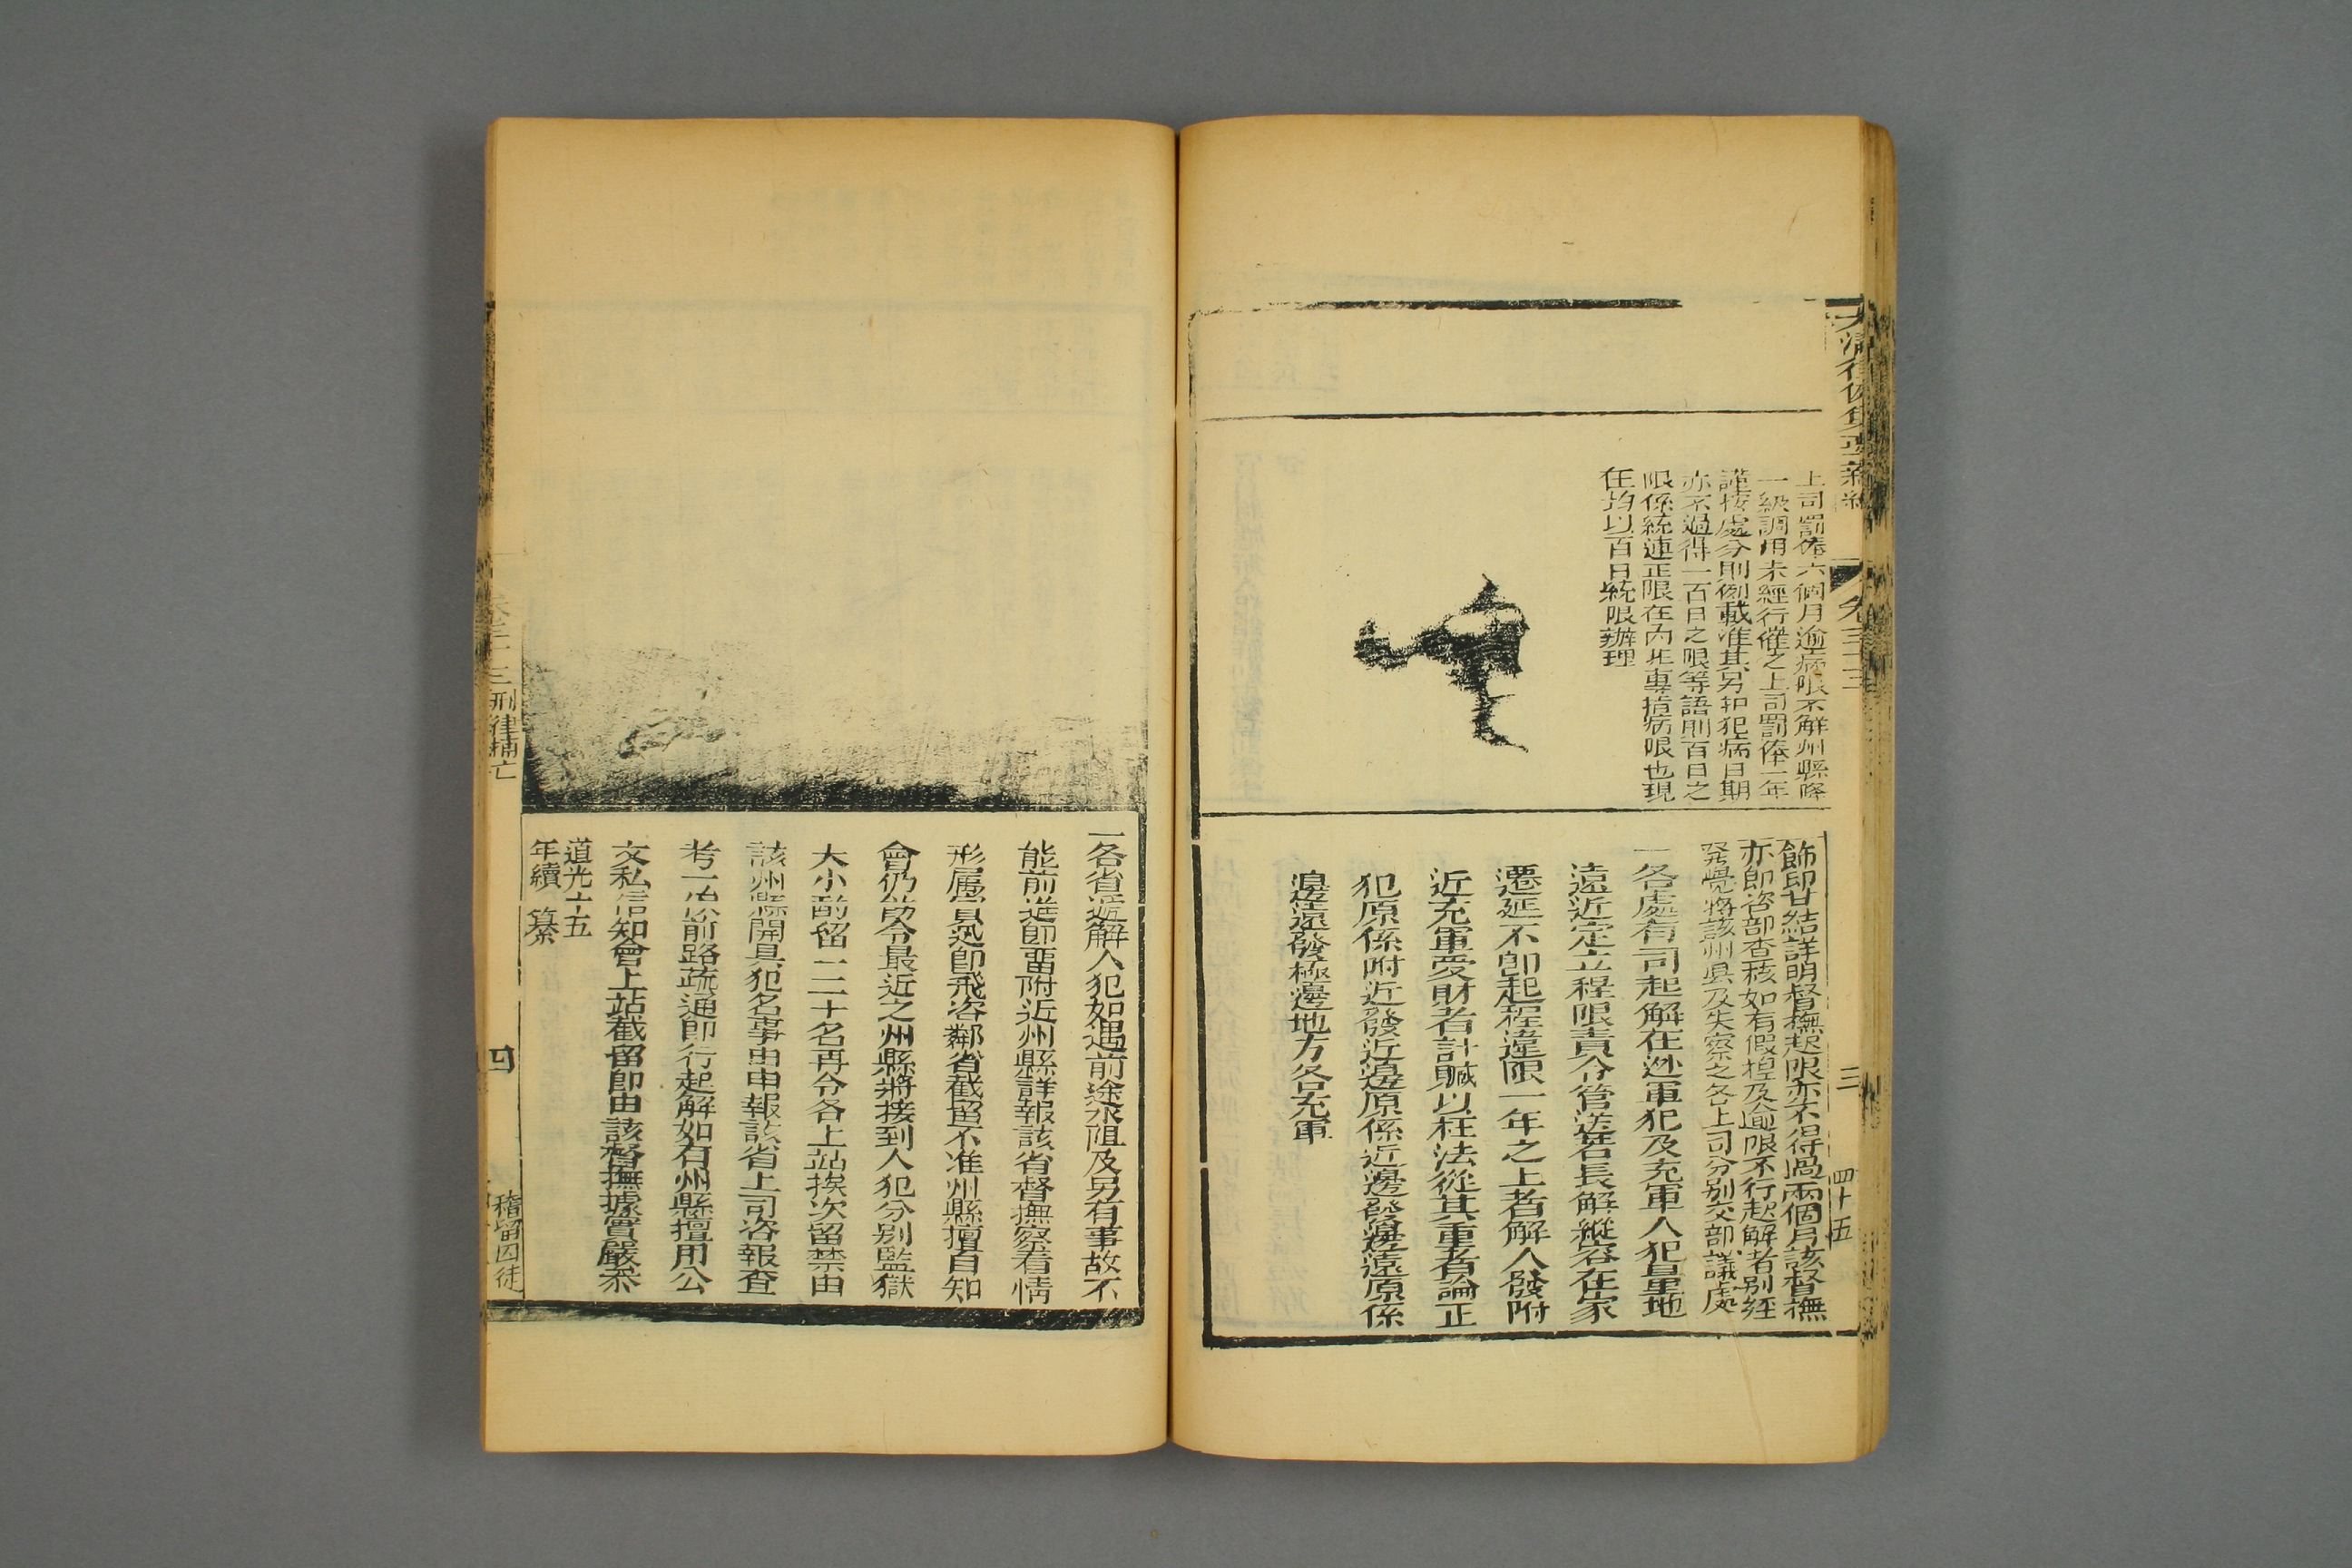 大清律例集要新編
卷三十三
三
四十五
上司罰俸六個月逾病限不解州縣降
一級調用未經行催之上司罰俸一年
謹按處分則例載准其另扣犯病日期
亦不過得一百日之限等語則百日之
限係統連正限在內非專指病限也現
在均以百日統限辦理
飾印甘結詳明督撫起限亦不得過兩個月該督撫
亦即咨部查核如有假揑及逾限不行起解者別經
發覺將該州縣及失察之各上司分別交部議處
一各處有司起解在逃軍犯及充軍人犯量地
遠近定立程限責令管送若長解縱容在家
遷延不即起程違限一年之上者解人發附
近充軍受財者計贓以枉法從其重者論正
犯原係附近發近邊原係近邊發邊遠原係
邊遠發極邊地方各充軍
一各省遞解人犯如遇前途水阻及另有事故不
能前進即留附近州縣詳報該省督撫察看情
形屬實迅即飛咨鄰省截留不准州縣擅自知
會仍飭令最近之州縣將接到人犯分別監獄
大小酌留一二十名再令各上站挨次留禁由
該州縣開具犯名事由申報該省上司咨報查
考一俟前路疏通即行起解如有州縣擅用公
文私信知會上站截留即由該督撫據實嚴叅
道光十五
年續 纂
卷三十三 刑律捕亡
四
稽留囚徒